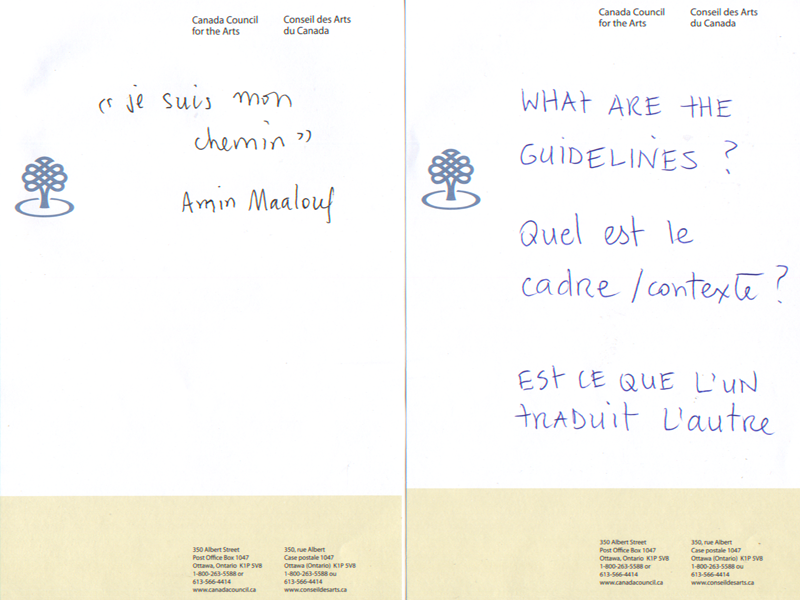 Canada Council
for the Arts
Conseil des Arts
du Canada
“ je suis mon
chemin ”
Amin Maalouf
350 Albert Street
Post Office Box 1047
Ottawa, Ontario K1P 5V8
1-800-263-5588 or
613-566-4414
www.canadacouncil.ca
350, rue Albert
Case postale 1047
Ottawa (Ontario) K1P 5V8
1-800-263-5588 ou
613-566-4414
www.conseildesarts.ca
Canada Council
for the Arts
Conseil des Arts
du Canada
WHAt ARE tHE
GUiDELiNES ?
Quel est le
cadre / contexte ?
ESt CE QUE L'UN
tRADuit L'autre
350 Albert Street
Post Office Box 1047
Ottawa, Ontario K1P 5V8
1-800-263-5588 or
613-566-4414
www.canadacouncil.ca
350, rue Albert
Case postale 1047
Ottawa (Ontario) K1P 5V8
1-800-263-5588 ou
613-566-4414
www.conseildesarts.ca